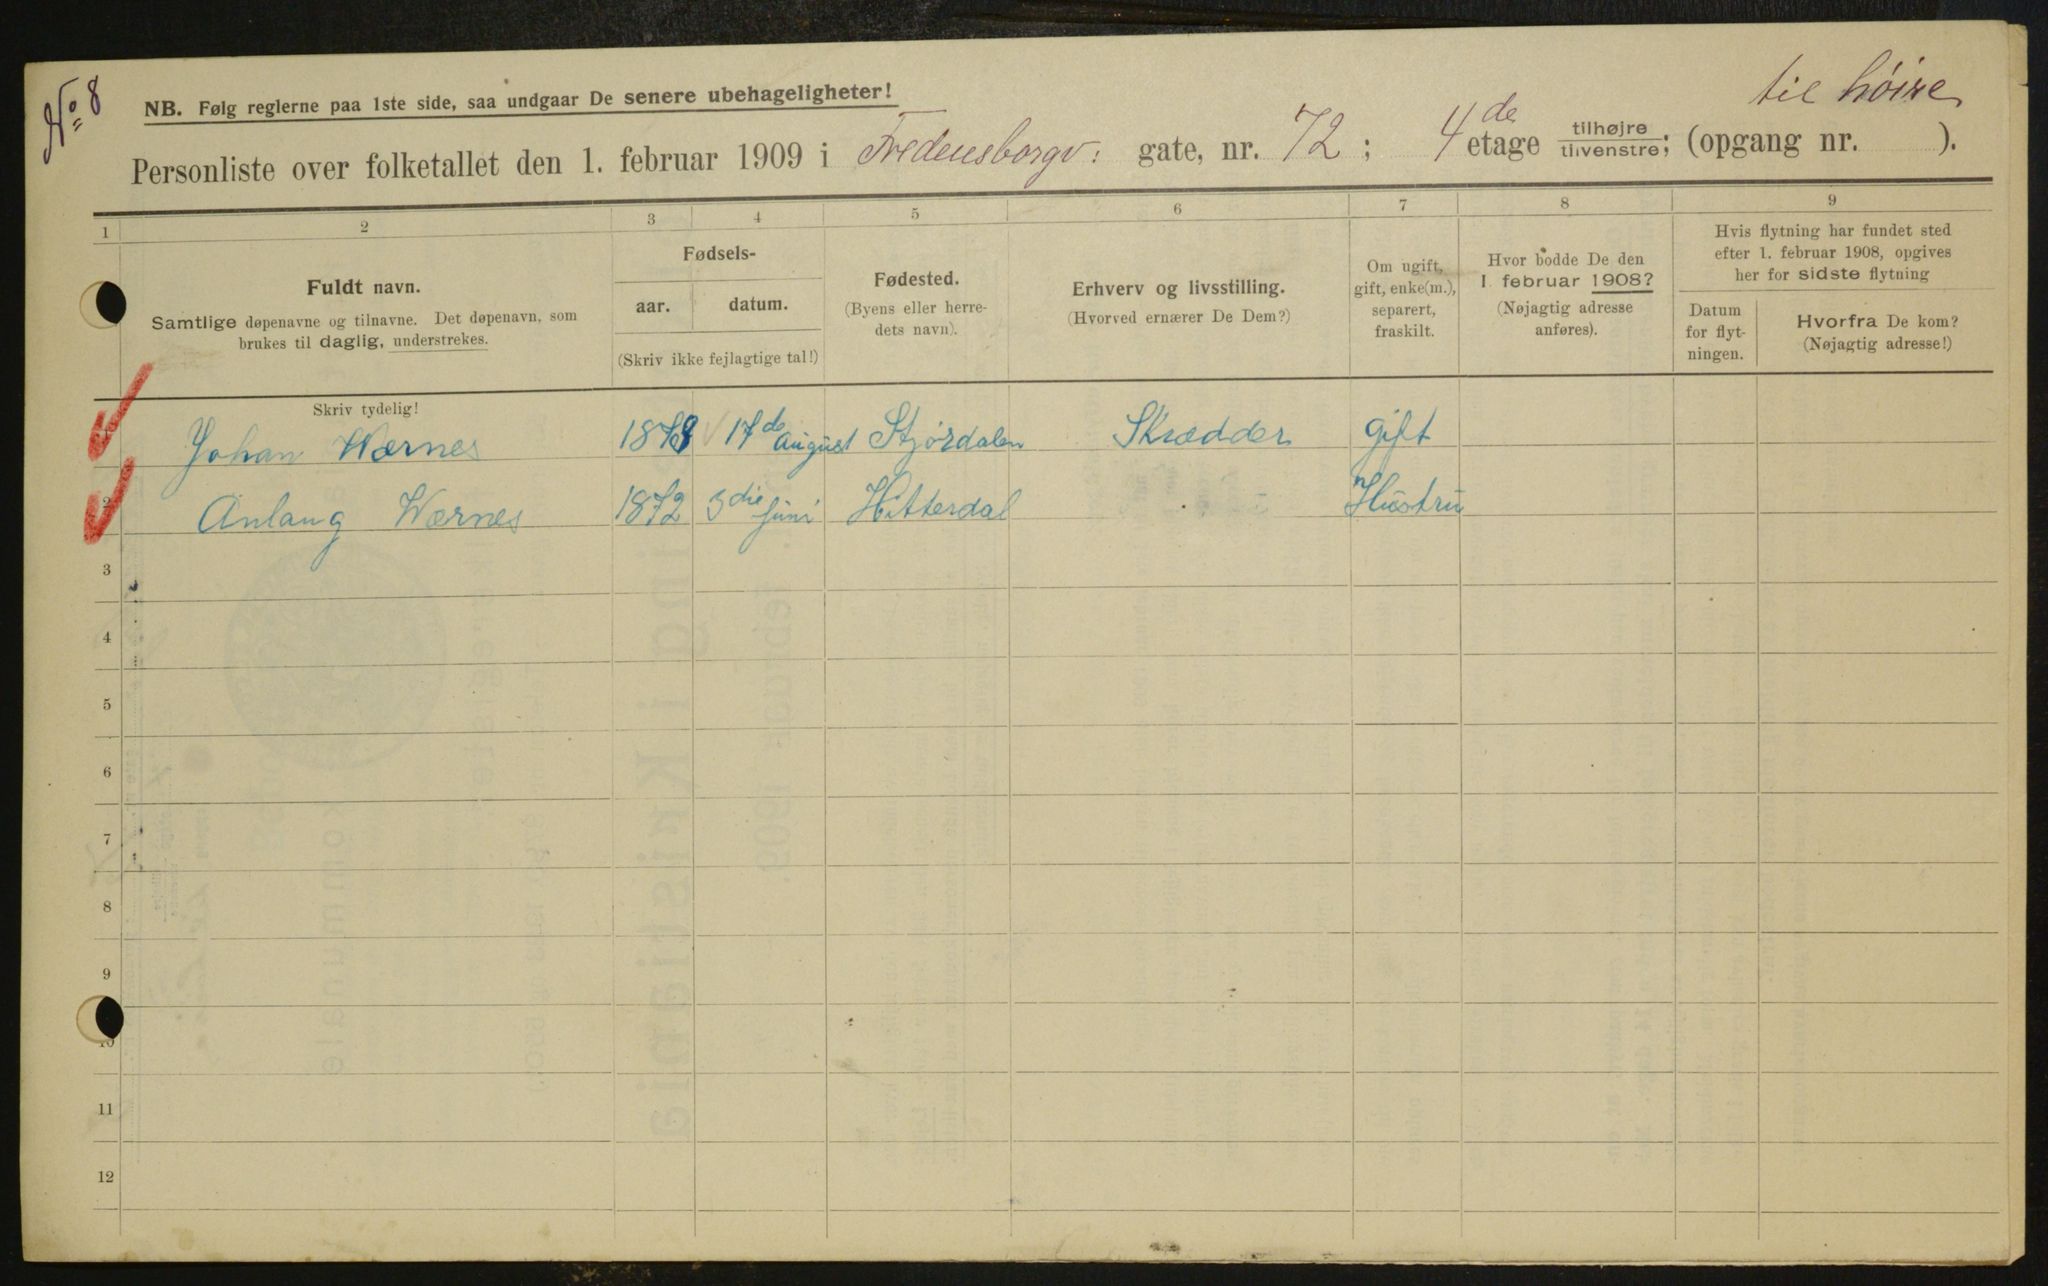 No 8
til høire
NB. Følg reglerne paa 1ste side, saa undgaar De senere ubehageligheter!
Personliste over folketallet den 1. februar 1909 i Fredensborgv: gate, nr. 72; 4de etage tilhøjre tilvenstre; (opgang nr. ).
1 2 3 4 5 6 7 8 9
Fuldt navn.
Samtlige døpenavne og tilnavne. Det døpenavn, som
brukes til daglig, understrekes.
Fødsels-
aar. datum.
(Skriv ikke fejlagtige tal!)
Fødested.
(Byens eller herre-
dets navn).
Erhverv og livsstilling.
(Hvorved ernærer De Dem?)
Om ugift,
gift, enke(m.),
separert,
fraskilt.
Hvor bodde De den
1 februar 1908?
(Nøjagtig adresse
anføres).
Hvis flytning har fundet sted
efter 1. februar 1908, opgives
her for sidste flytning
Datum
for flyt-
ningen.
Hvorfra De kom?
(Nøjagtig adresse!)
Skriv tydelig!
1 Johan Wærnes 17de august Stjørdalen Skrædder Gift
2 Anlaug Wærnes 1872 3die juni Hitterdal Hustru
3
4
5
6
7
8
9
10
11
12